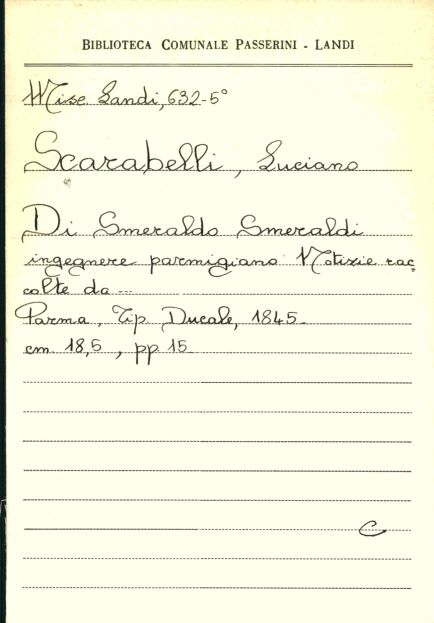 BIBLIOTECA COMUNALE PASSERINI - LANDI
Misc. Landi, 632-5°
Scarabelli, Luciano
Di Smeraldo Smeraldi
ingegnere parmigiano Notizie rac
colte da ---
Parma, Tip. Ducale, 1845
cm. 18,5, pp. 15
C